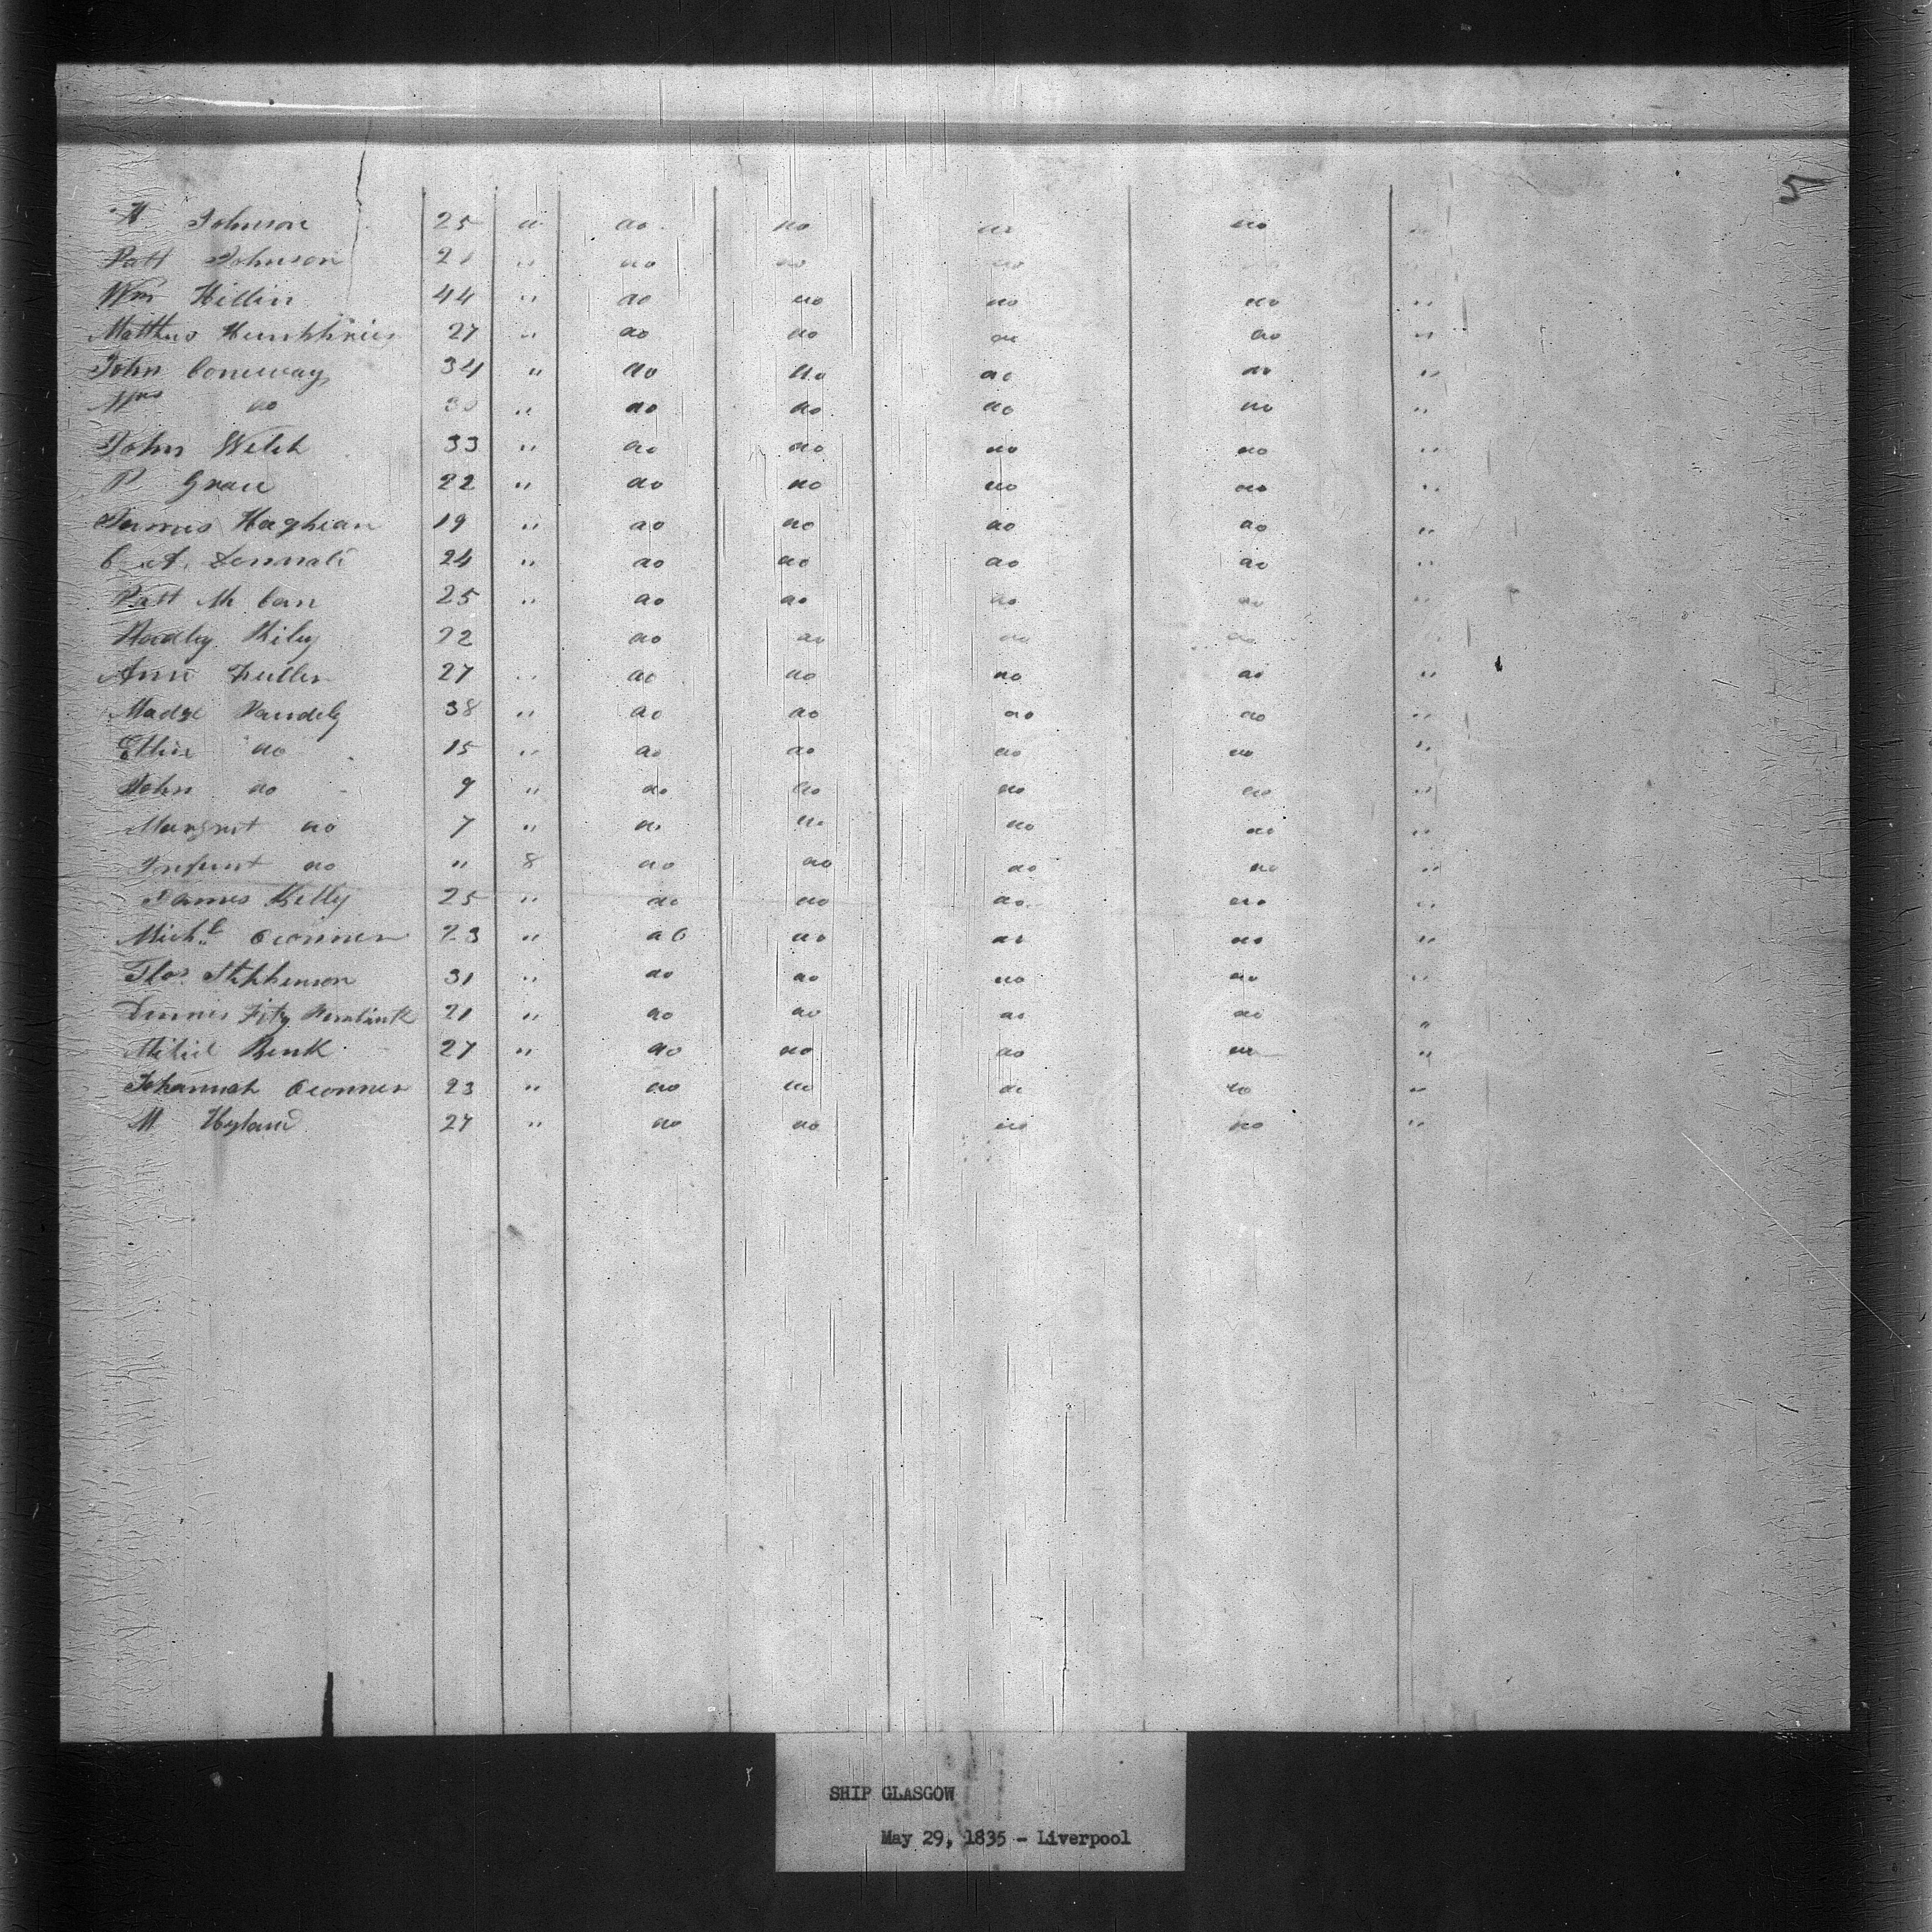 5
H Johnson 25 " do do do do "
Patt Johnson 21 " do do do do "
Wm Hillin 44 " do do do do "
Matthew Humphries 27 " do do do do "
John Coneway 34 " do do do do "
Mrs do 30 " do do do do "
John Welch 33 " do do do do "
P 22 " do do do do "
James Haghean 19 " do do do do "
C A. 24 " do do do do "
Patt Mc Can 25 " do do do do "
Riley 22 do do do do
Ann Fuller 27 " do do do do "
Madge 38 " do do do do "
Ellin do 15 " do do do do "
John do 9 " do do do do "
Margret do 7 " do do do do "
Infant do " 8 do do do do "
James Kelly 25 " do do do do "
Michl. Oconner 23 " do do do do "
Thos Stephenson 31 " do do do do "
Dennis Fitz 21 " do do do do "
27 " do do do do "
Johannah Oconner 23 " do do do do "
M Hyland 27 " do do do do "
SHIP GLASGOW
May 29, 1835 - Liverpool